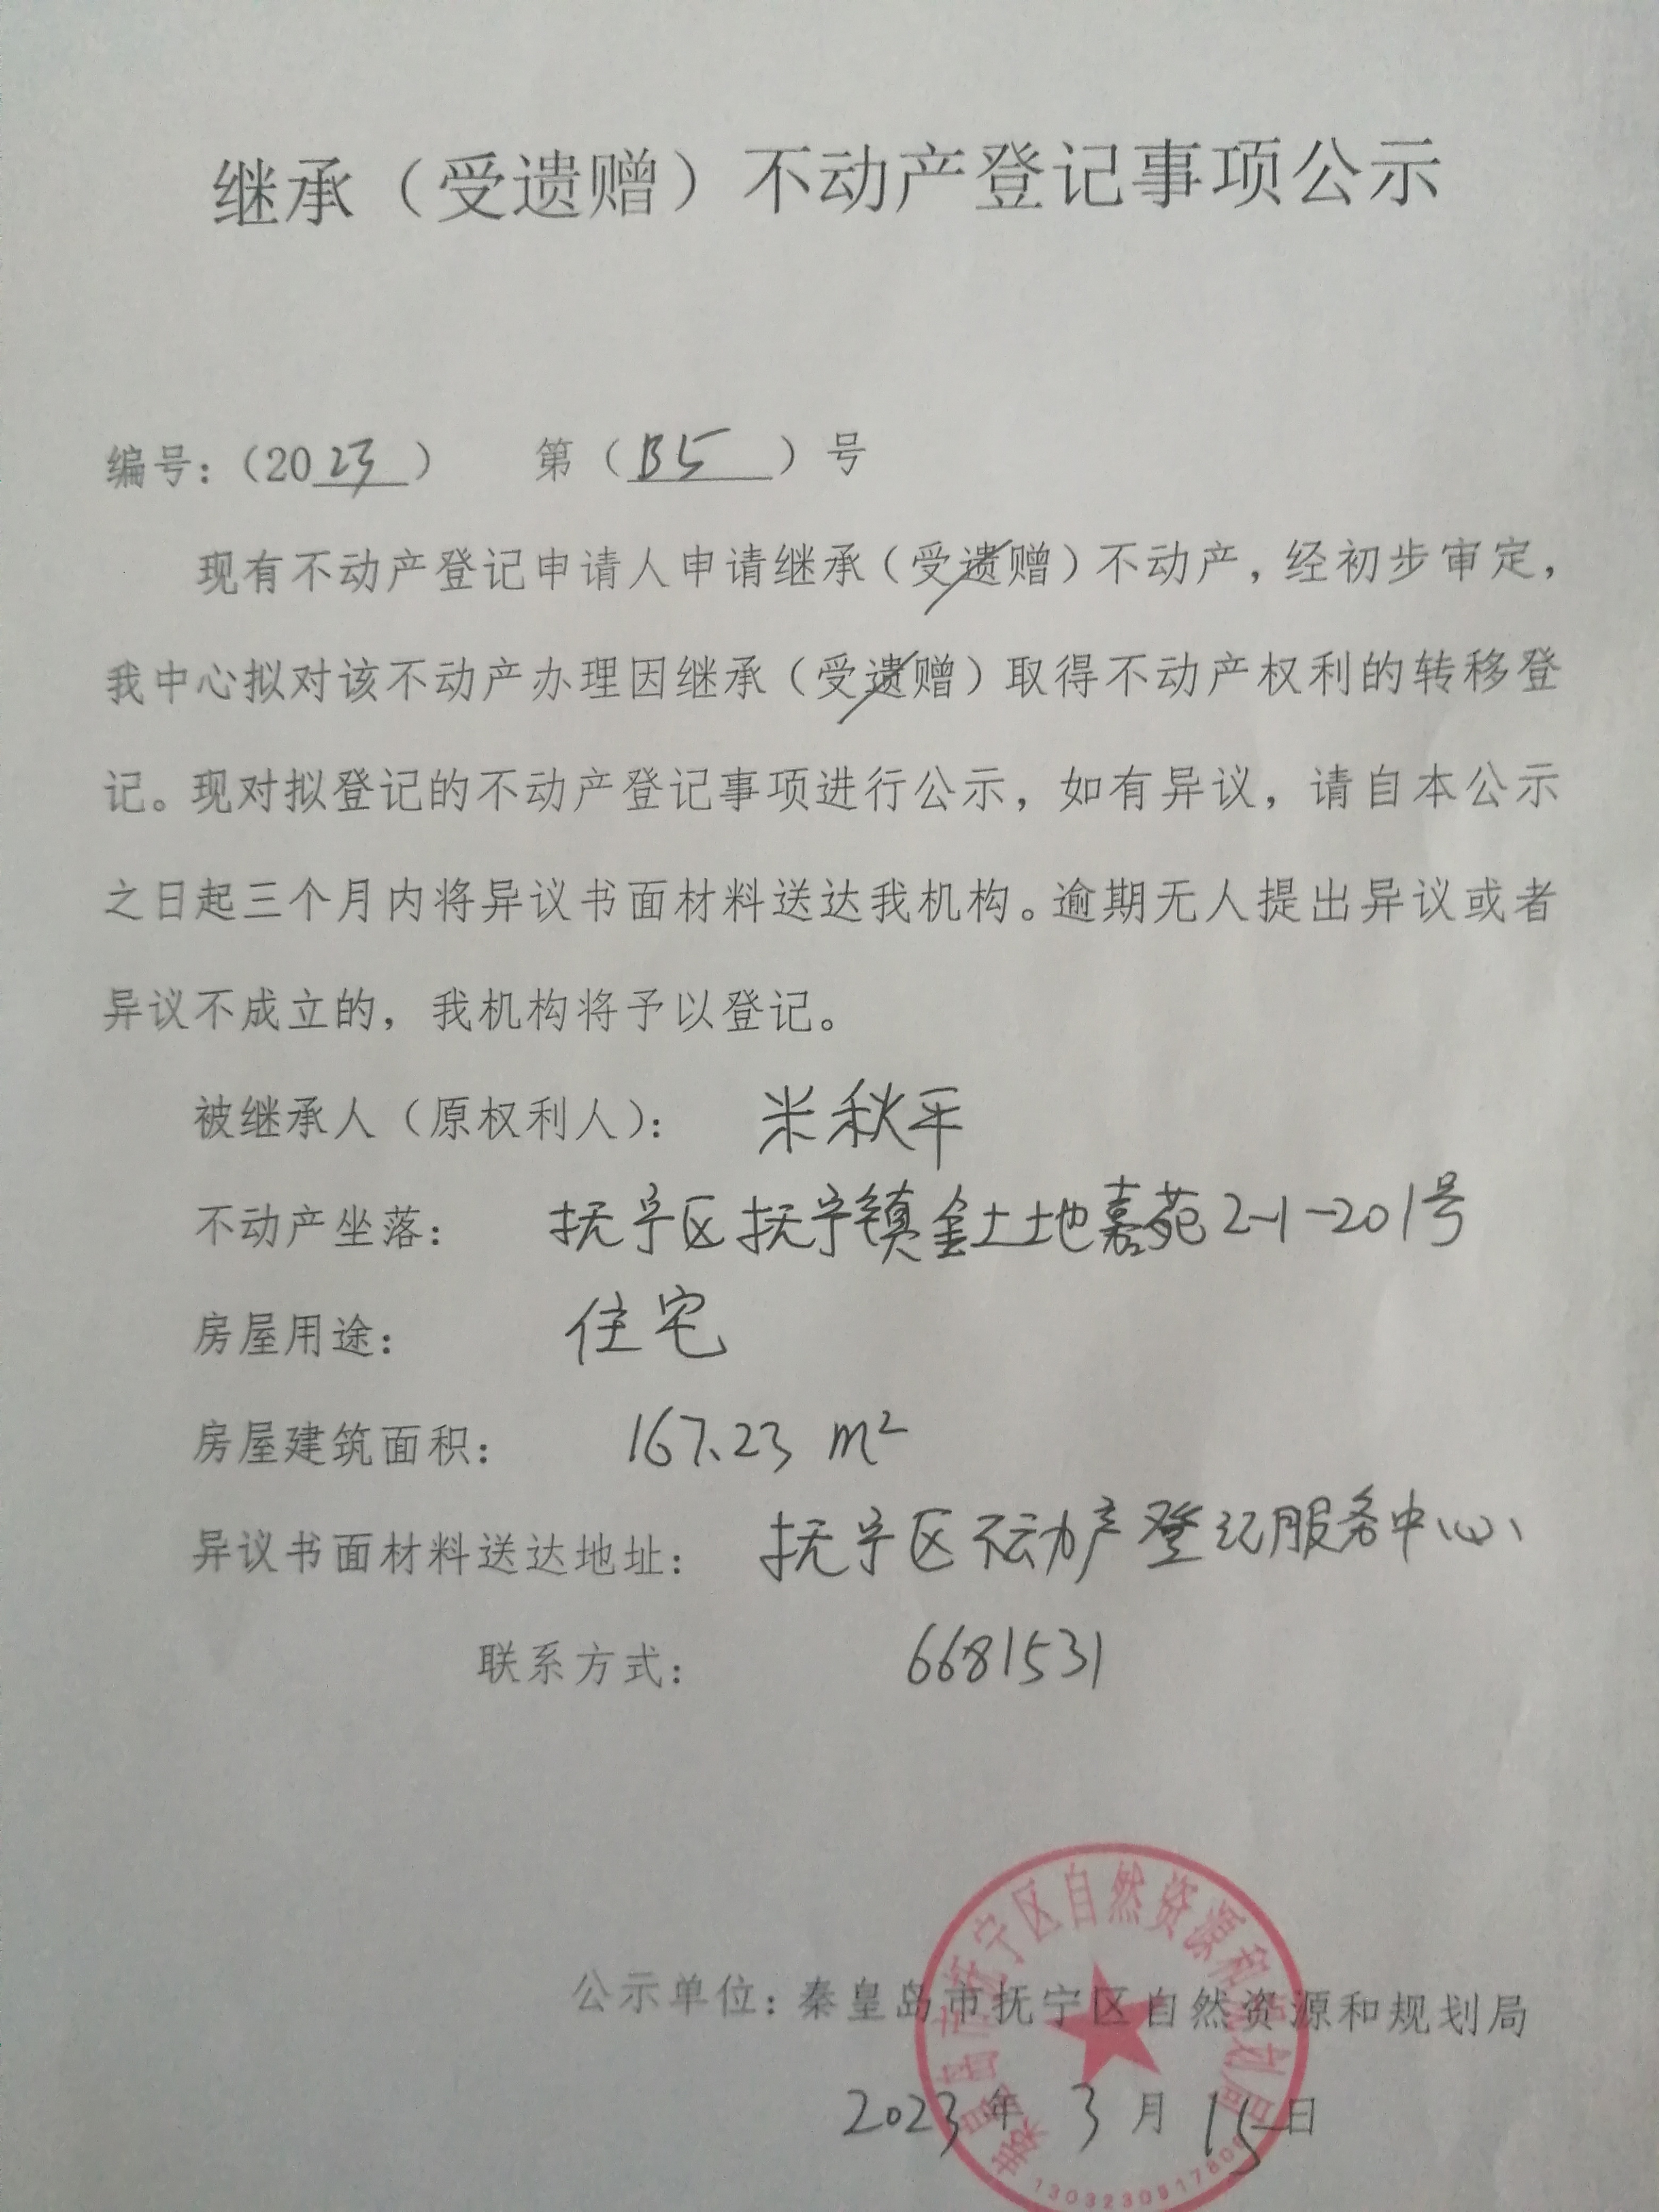 继承（受遗赠）不动产登记事项公示
编号：（2023） 第（B5）号
现有不动产登记申请人申请继承（受遗赠）不动产，经初步审定，
我中心拟对该不动产办理因继承（受遗赠）取得不动产权利的转移登
记。现对拟登记的不动产登记事项进行公示，如有异议，请自本公示
之日起三个月内将异议书面材料送达我机构。逾期无人提出异议或者
异议不成立的，我机构将予以登记。
被继承人（原权利人）： 米秋平
不动产坐落： 抚宁区抚宁镇金土地嘉苑2-1-201号
房屋用途： 住宅
房屋建筑面积： 167.23 m²
异议书面材料送达地址： 抚宁区不动产登记服务中心
联系方式： 6681531
公示单位：秦皇岛市抚宁区自然资源和规划局
2023年 3月 15日
秦皇岛市抚宁区自然资源和规划局